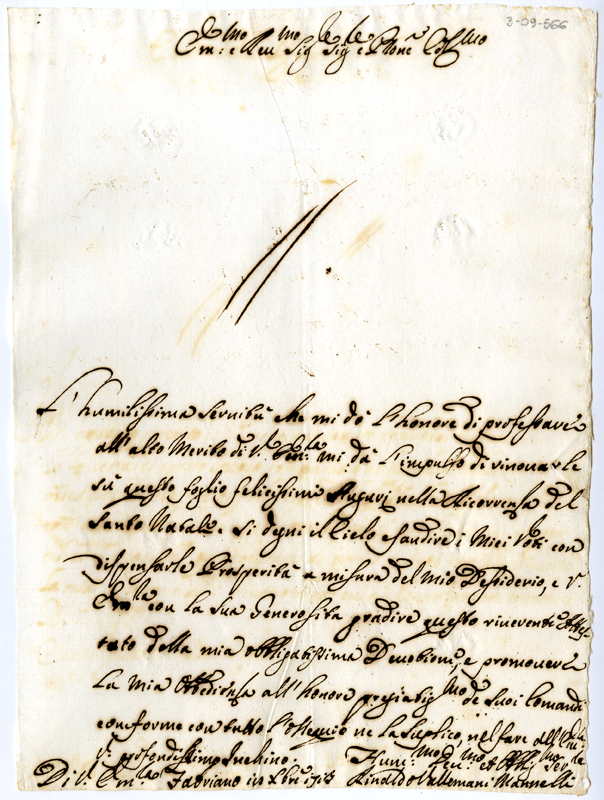 3-09-566
Em:mo e Rev:mo Sig:re Sig:re e P̄rone Col:mo
L'humilissima servitù che mi dò l'honore di professare
all'alto Merito di V. Em:za mi dà l'impulso di rinovarle
sù questo foglio felicissimi Auguri nella Ricorrenza del
Santo Natale. Si degni il Cielo esaudire i Miei Voti con
dispensarle Prosperità a misura del mio Desiderio, e V.
Em:za con la sua Generosità gradire questo riverente Attes
tato della mia obbligatissima Devotione, e promovere
la mia Obbedienza all'honore pregiatis:mo de suoi Comandi
conforme con tutto l'ossequio ne la suplico, nel fare all'Em:za
V. profondissimo Inchino.
Di V. Em:za Fabriano
Hum:mo Dev:mo et Obb:mo Ser:re
Rinaldo Vallemani Mannelli